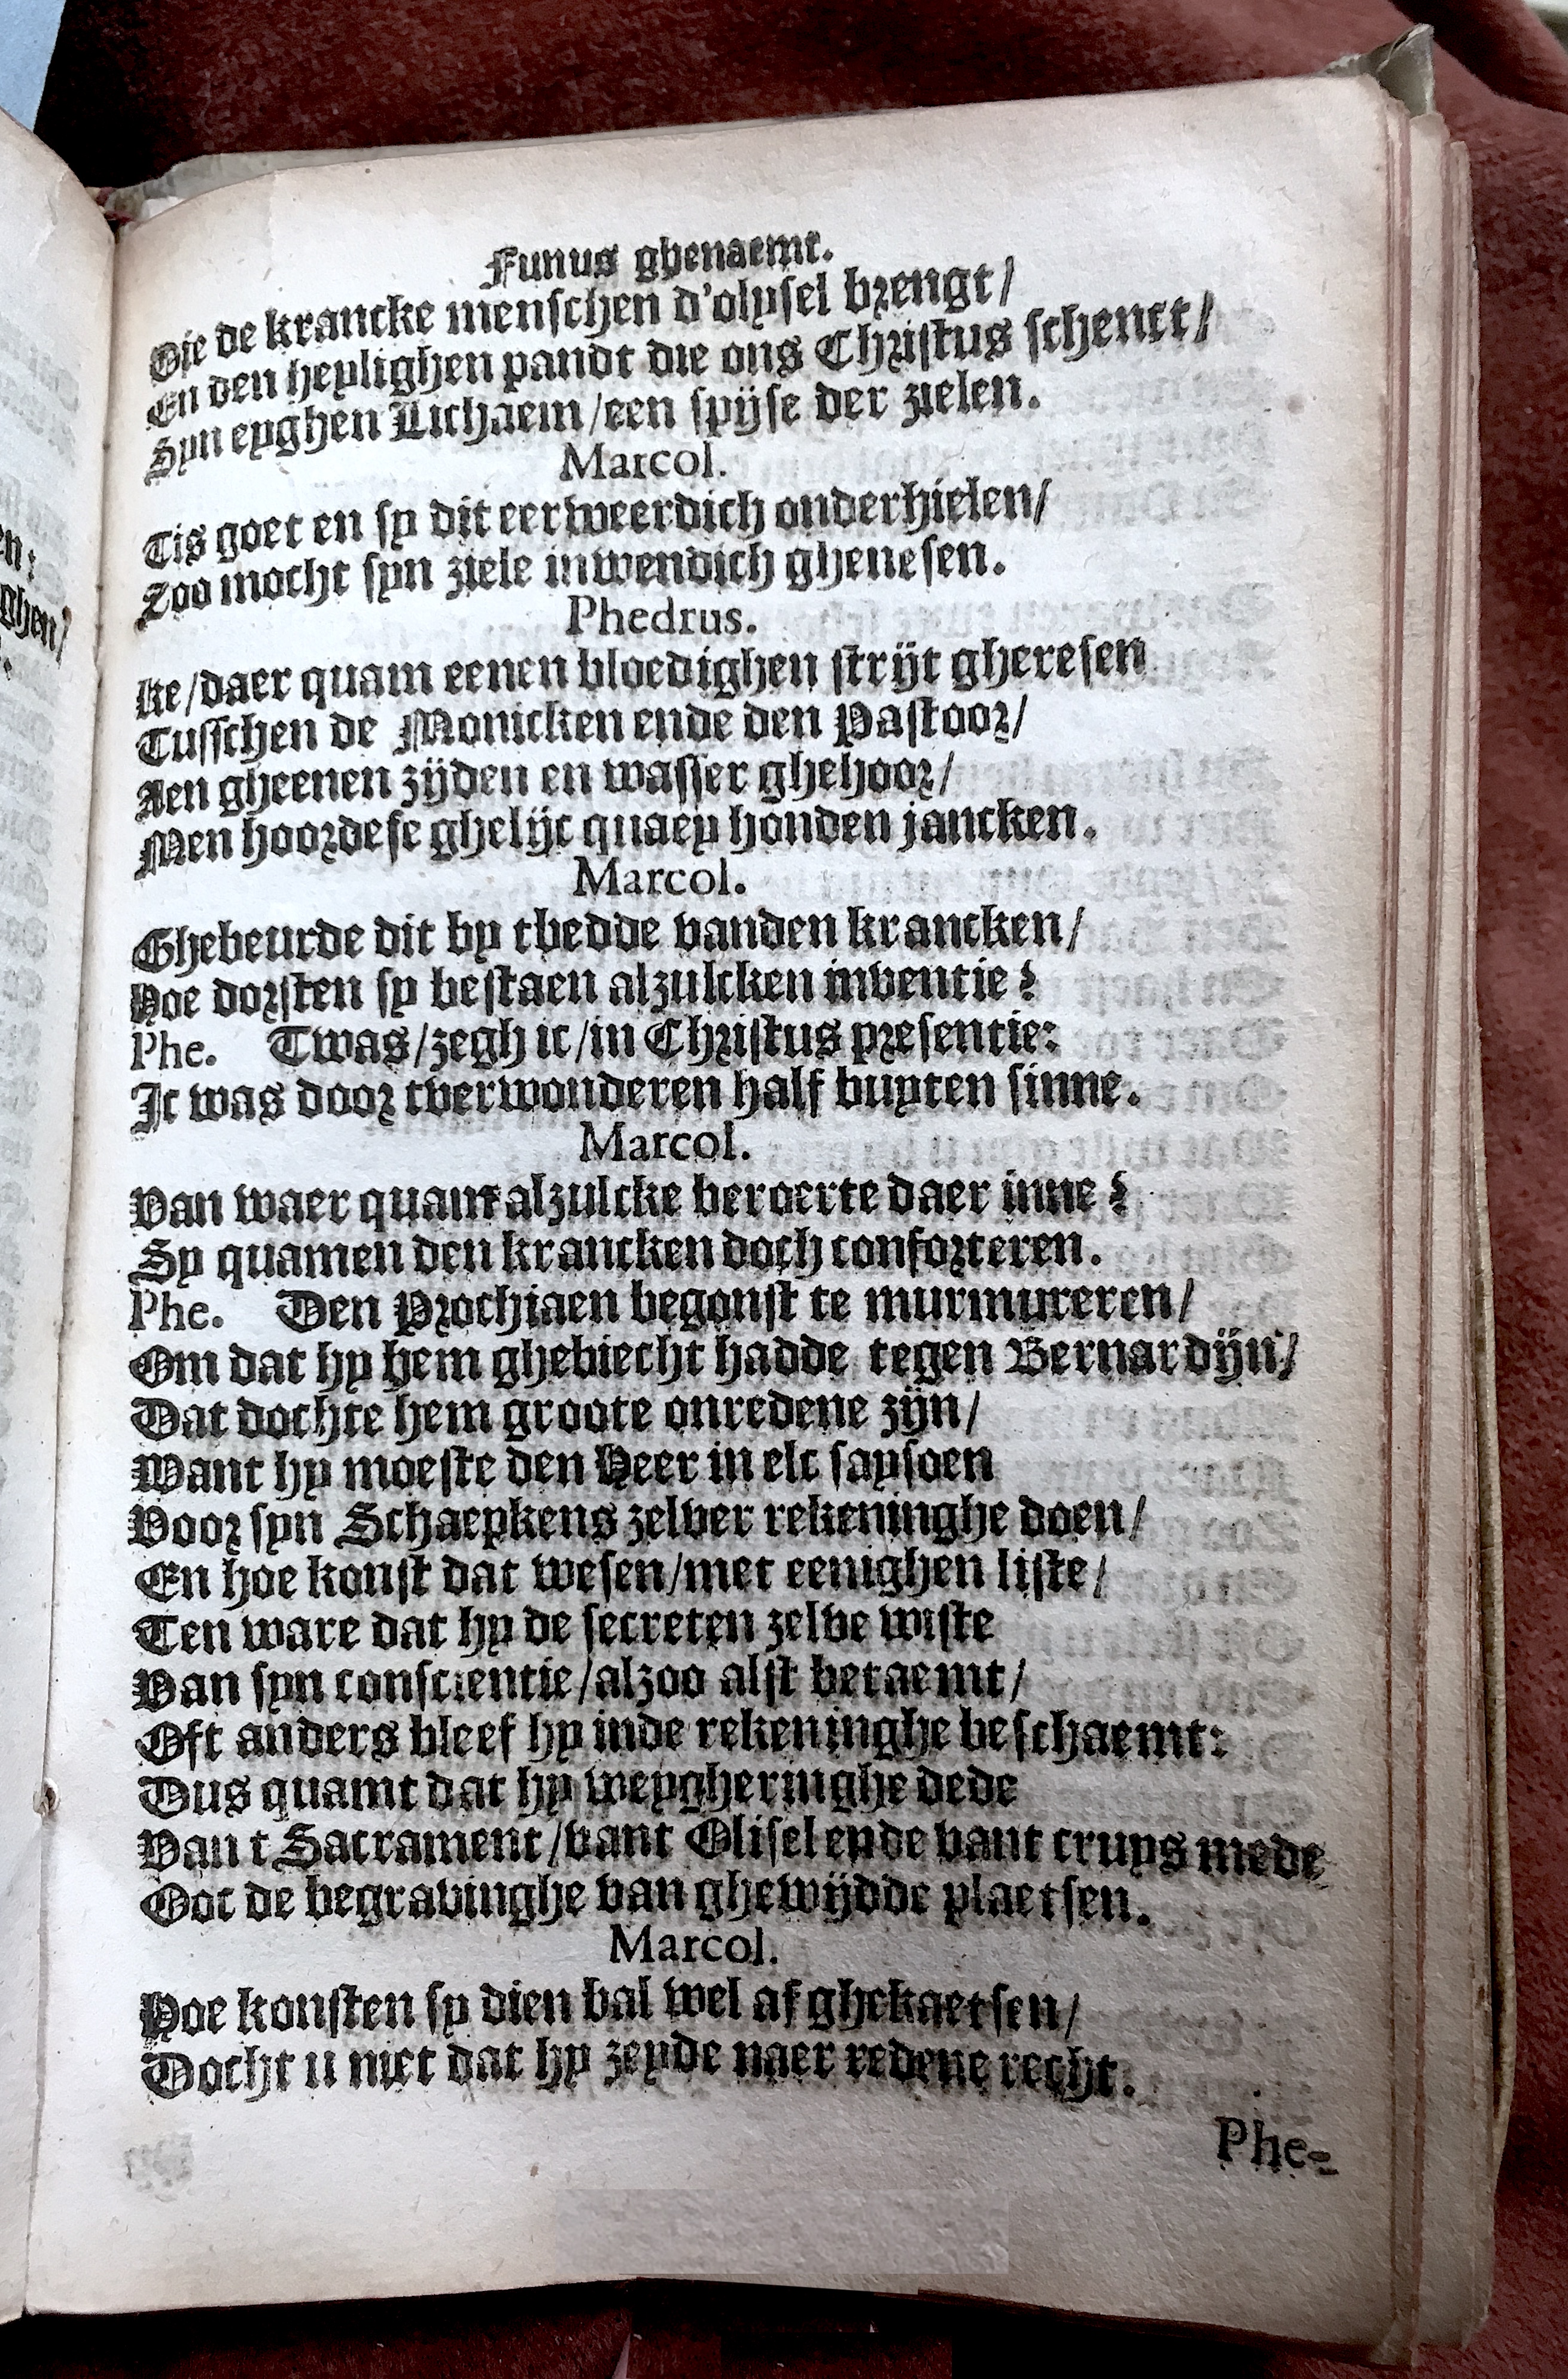 Funus ghenaemt.
Die de krancke menschen d'olysel brengt/
En den heylighen pandt die ons Christus schenct/
Syn eyghen Lichaem/een spijse der zielen.
Marcol.
Tis goet en sy dit eerweerdich onderhielen/
Zoo mocht syn ziele inwendich ghenesen.
Phedrus.
Ke/daer quam eenen bloedighen strijt gheresen
Tusschen de Monicken ende den Pastoor/
Aen gheenen zijden en wasser ghehoor/
Men hoordese ghelijc quaey honden jancken.
Marcol.
Ghebeurde dit by tbedde vanden krancken/
Hoe dorsten sy bestaen alzulcken inventie?
Phe. Twas/zegh ic/in Christus presentie:
Ic was door tverwonderen half buyten sinne.
Marcol.
Van waer quam alzulcke beroerte daer inne?
Sy quamen den krancken doch conforteren.
Phe. Den Prochiaen begonst te murmureren/
Om dat hy hem ghebiecht hadde tegen Bernardijn/
Dat dochte hem groote onredene zijn/
Want hy moeste den Heer in elc saysoen
Voor syn Schaepkens zelver rekeninghe doen/
En hoe konst dat wesen/met eenighen liste/
Ten ware dat hy de secreten zelve wiste
Van syn conscientie/alzoo alst betaemt/
Oft anders bleef hy inde rekeninghe beschaemt:
Dus quamt dat hy weygheringhe dede
Van t Sacrament/vant Olisel ende vant cruys mede
Ooc de begravinghe van ghewijdde plaetsen.
Marcol.
Hoe konsten sy dien bal wel af ghekaetsen/
Docht u niet dat hy zeyde naer redene recht.
Phe-
en:
ghen/